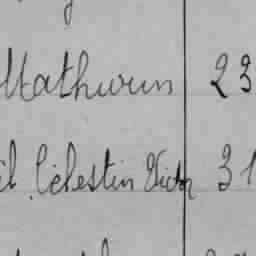 Mathurin 23
Célestin Victor 31